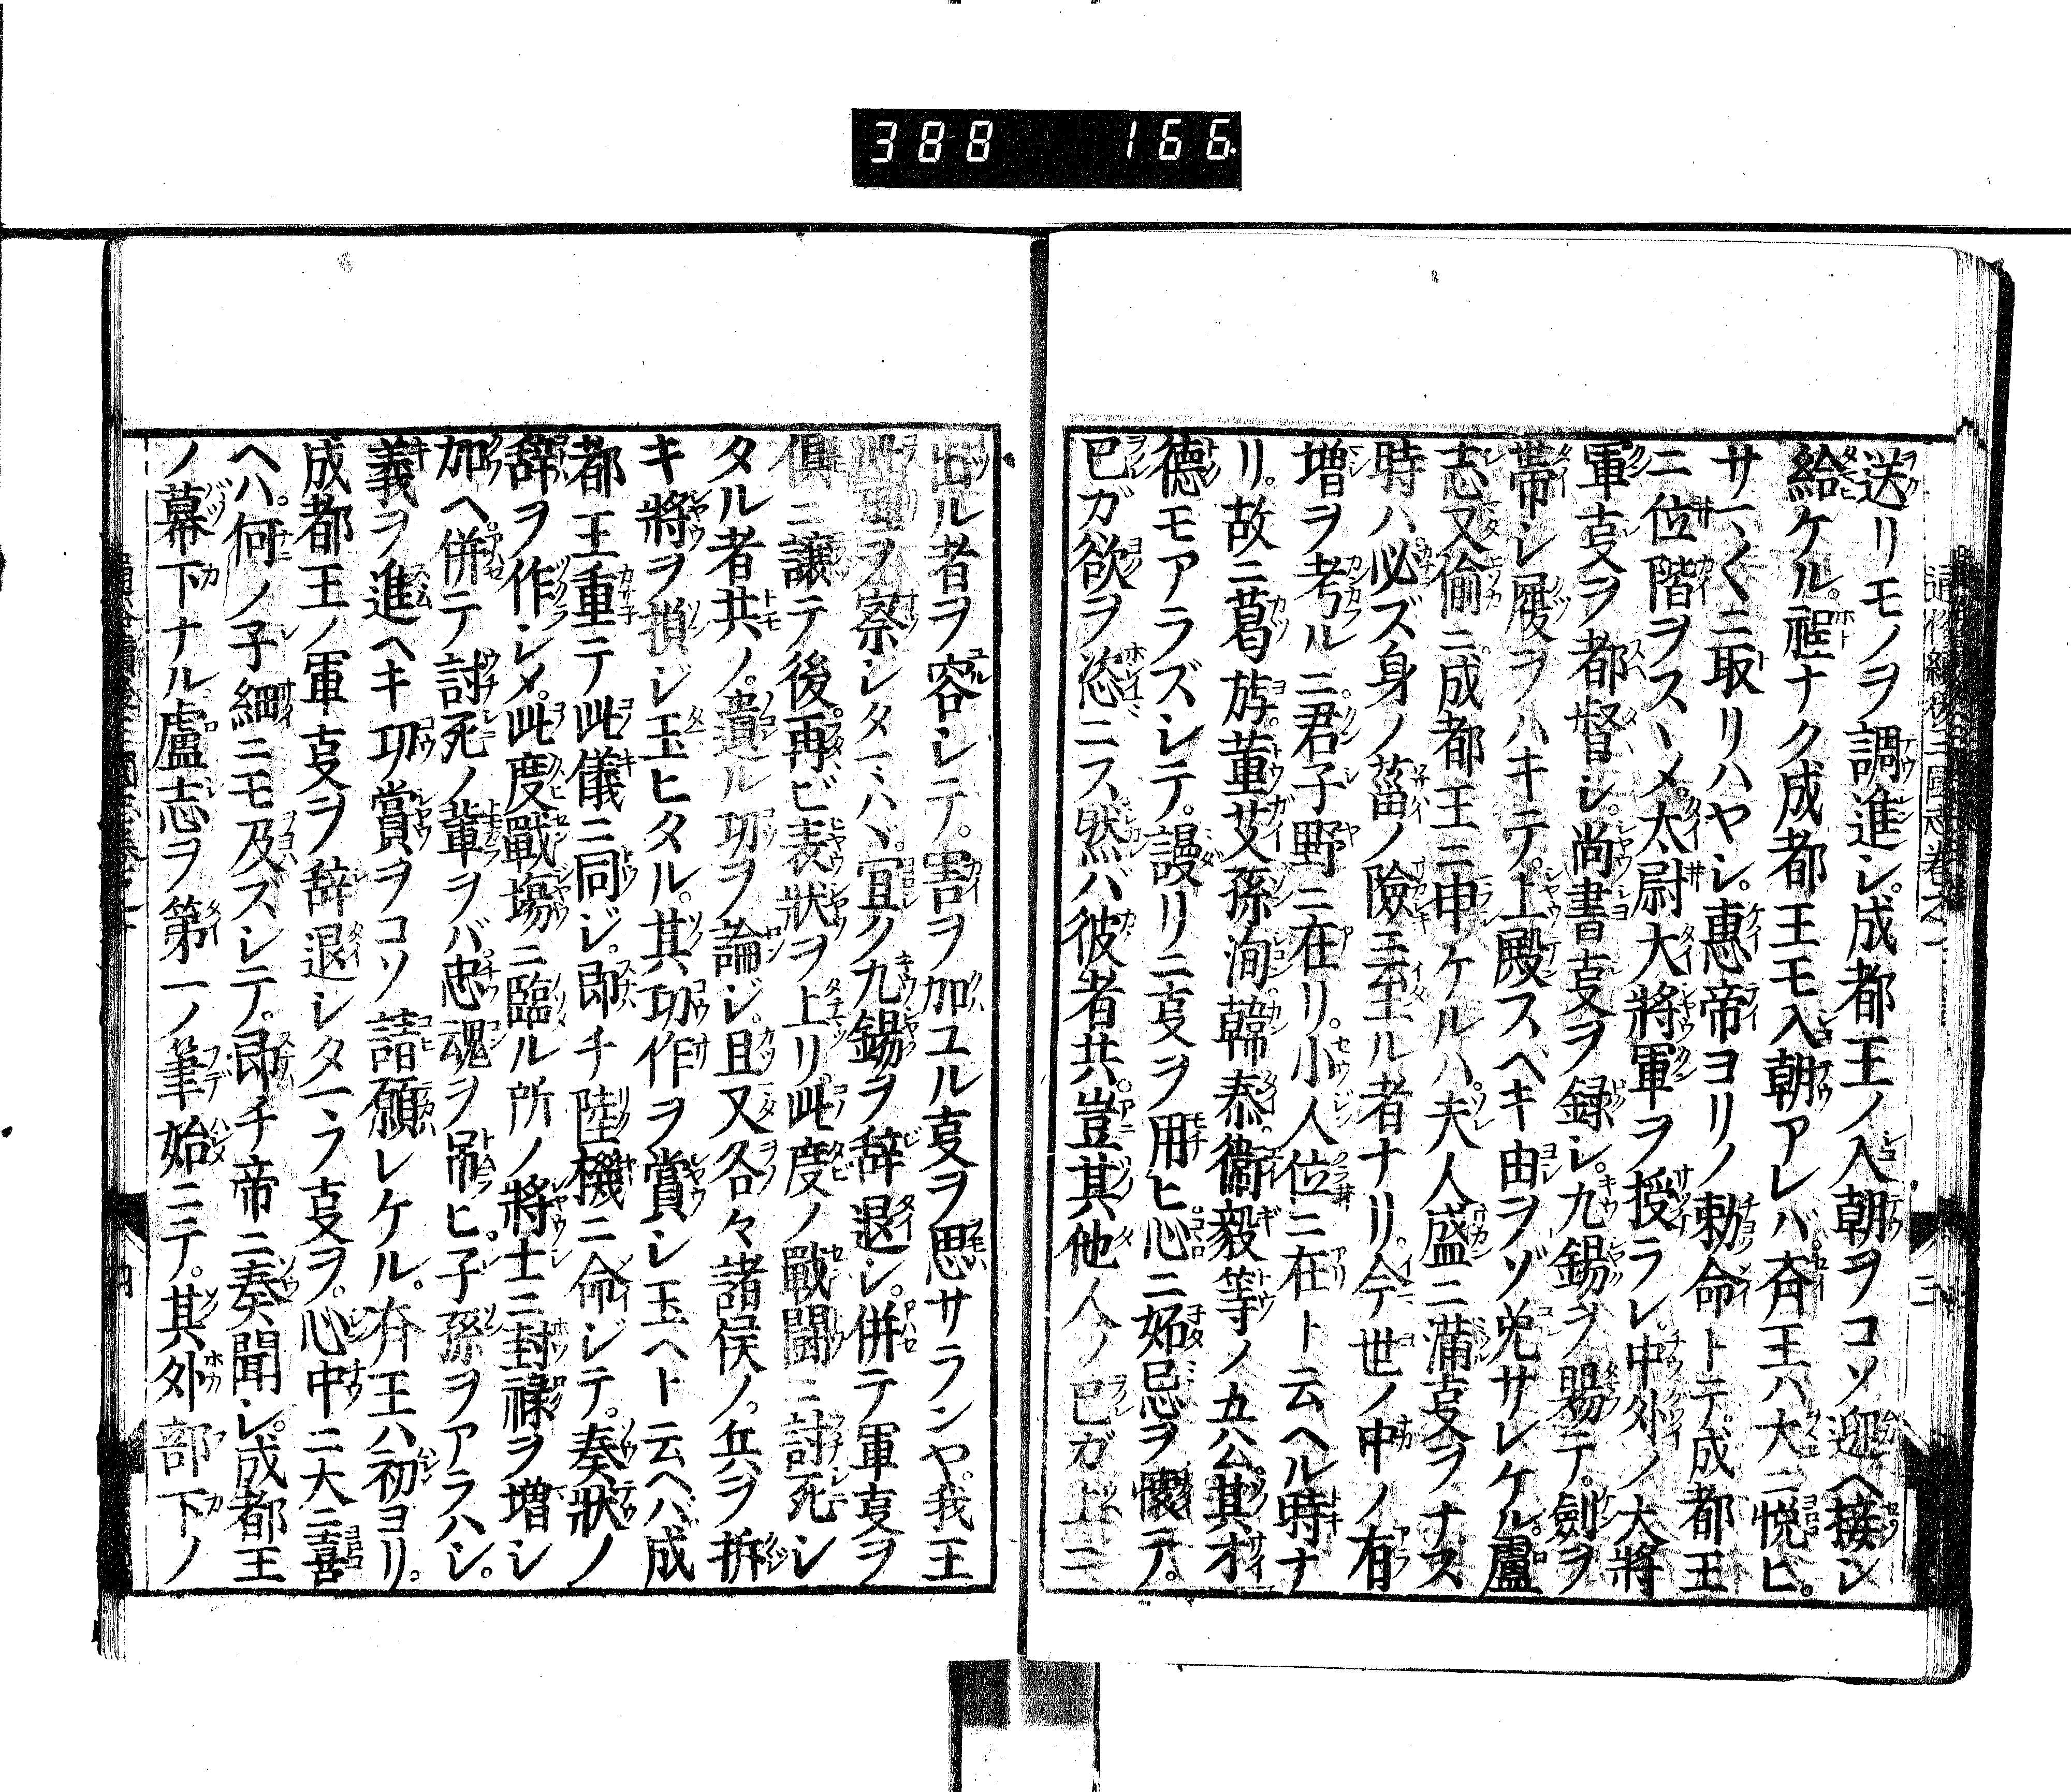 388 166
送リモノヲ調進シ。成都王ノ入朝ヲコソ迎ヘ接シ
給ケル。程ナク成都王モ入朝アレバ。斉王ハ大ニ悦ビ。
サマ〲ニ取リハヤシ。惠帝ヨリノ勅命トテ。成都王
ニ位階ヲスヽメ。太尉大將軍ヲ授ラレ。中外ノ大將
軍叓ヲ都督シ。尚書叓ヲ録シ。九錫ヲ賜テ。劍ヲ
帯シ履ヲハキテ。上殿スベキ由ヲゾ免サレケル。盧
志又偷ニ成都王ニ申ケルハ。夫人盛ニ滿叓ヲナス
時ハ。必ズ身ノ菑ノ險ニ至ル者ナリ。今世ノ中ノ有
増ヲ考ルニ。君子野ニ在リ。小人位ニ在ト云ヘル時ナ
リ。故ニ葛旟。董艾。孫洵。韓泰。衞毅等ノ五公。其才
德モアラズシテ。謾リニ叓ヲ用ヒ。心ニ妬忌ヲ懐テ。
已ガ欲ヲ恣ニス。然バ彼者共。豈其他人ノ已ガ上ニ
出ル者ヲ容シテ。害ヲ加ユル叓ヲ思サランヤ。我王
此理ヲ察シタマハヾ。宜ク九錫ヲ辞退シ。併テ軍叓ヲ
俱ニ讓テ後。再ビ表狀ヲ上リ。此度ノ戰闘ニ討死シ
タル者共ノ。遺ル功ヲ論ジ。且又各々諸侯ノ。兵ヲ折
キ將ヲ損ジ玉ヒタル。其功作ヲ賞シ玉ヘト云ヘバ。成
都王重テ此儀ニ同ジ。即チ陸機ニ命ジテ。奏狀ノ
辞ヲ作シメ。此度戰塲ニ臨ル所ノ將士ニ封禄ヲ増シ
加ヘ。併テ討死ノ輩ヲバ。忠魂ヲ吊ヒ。子孫ヲアラハシ。
義ヲ進ベキ功賞ヲコソ請願レケル。斉王ハ初ヨリ。
成都王ノ軍叓ヲ辞退シタマフ叓ヲ。心中ニ大ニ喜
ヘバ。何ノ子細ニモ及ズシテ。即チ帝ニ奏聞シ。成都王
ノ幕下ナル。盧志ヲ第一ノ筆始ニテ。其外部下ノ